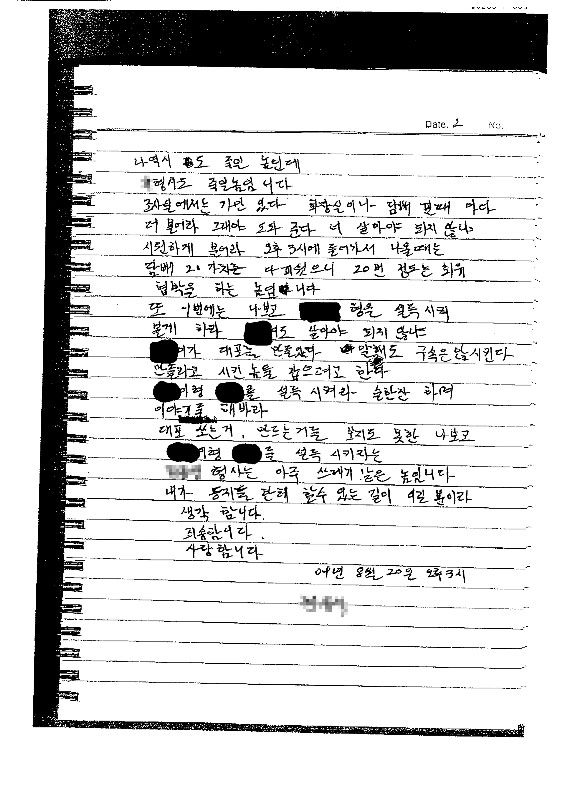 Date. 2 No.
나역시 도 죽일 놈인데
형사도 죽일놈입니다
3사실에서는 가만 있다 화장실이나 담배 필때 마다
더 불어라 그래야 도와 준다 너 살아야 되지 않냐
시원하게 불어라 오후 3시에 들어가서 나올때는
담배 20가치는 다 피웠으니 20번 정도는 회유
협박을 하는 놈입니다
또 이번에는 나보고 형은 설득 시켜
불게 하라 도 살아야 되지 않냐
가 대포를 만들었다 말해도 구속은 않시킨다
만들라고 시킨 놈을 잡으려고 한다
이형 를 설득 시켜와 술한잔 하며
이야기를 해바라
대포 쏘는거, 만드는거를 보지도 못한 나보고
이형 를 설득 시키라는
형사는 아주 쓰레기 같은 놈입니다
내가 동지를 위해 할수 있는 길이 이길 뿐이라
생각 합니다.
죄송합니다.
사랑합니다
04년 8월 20일 오후3시